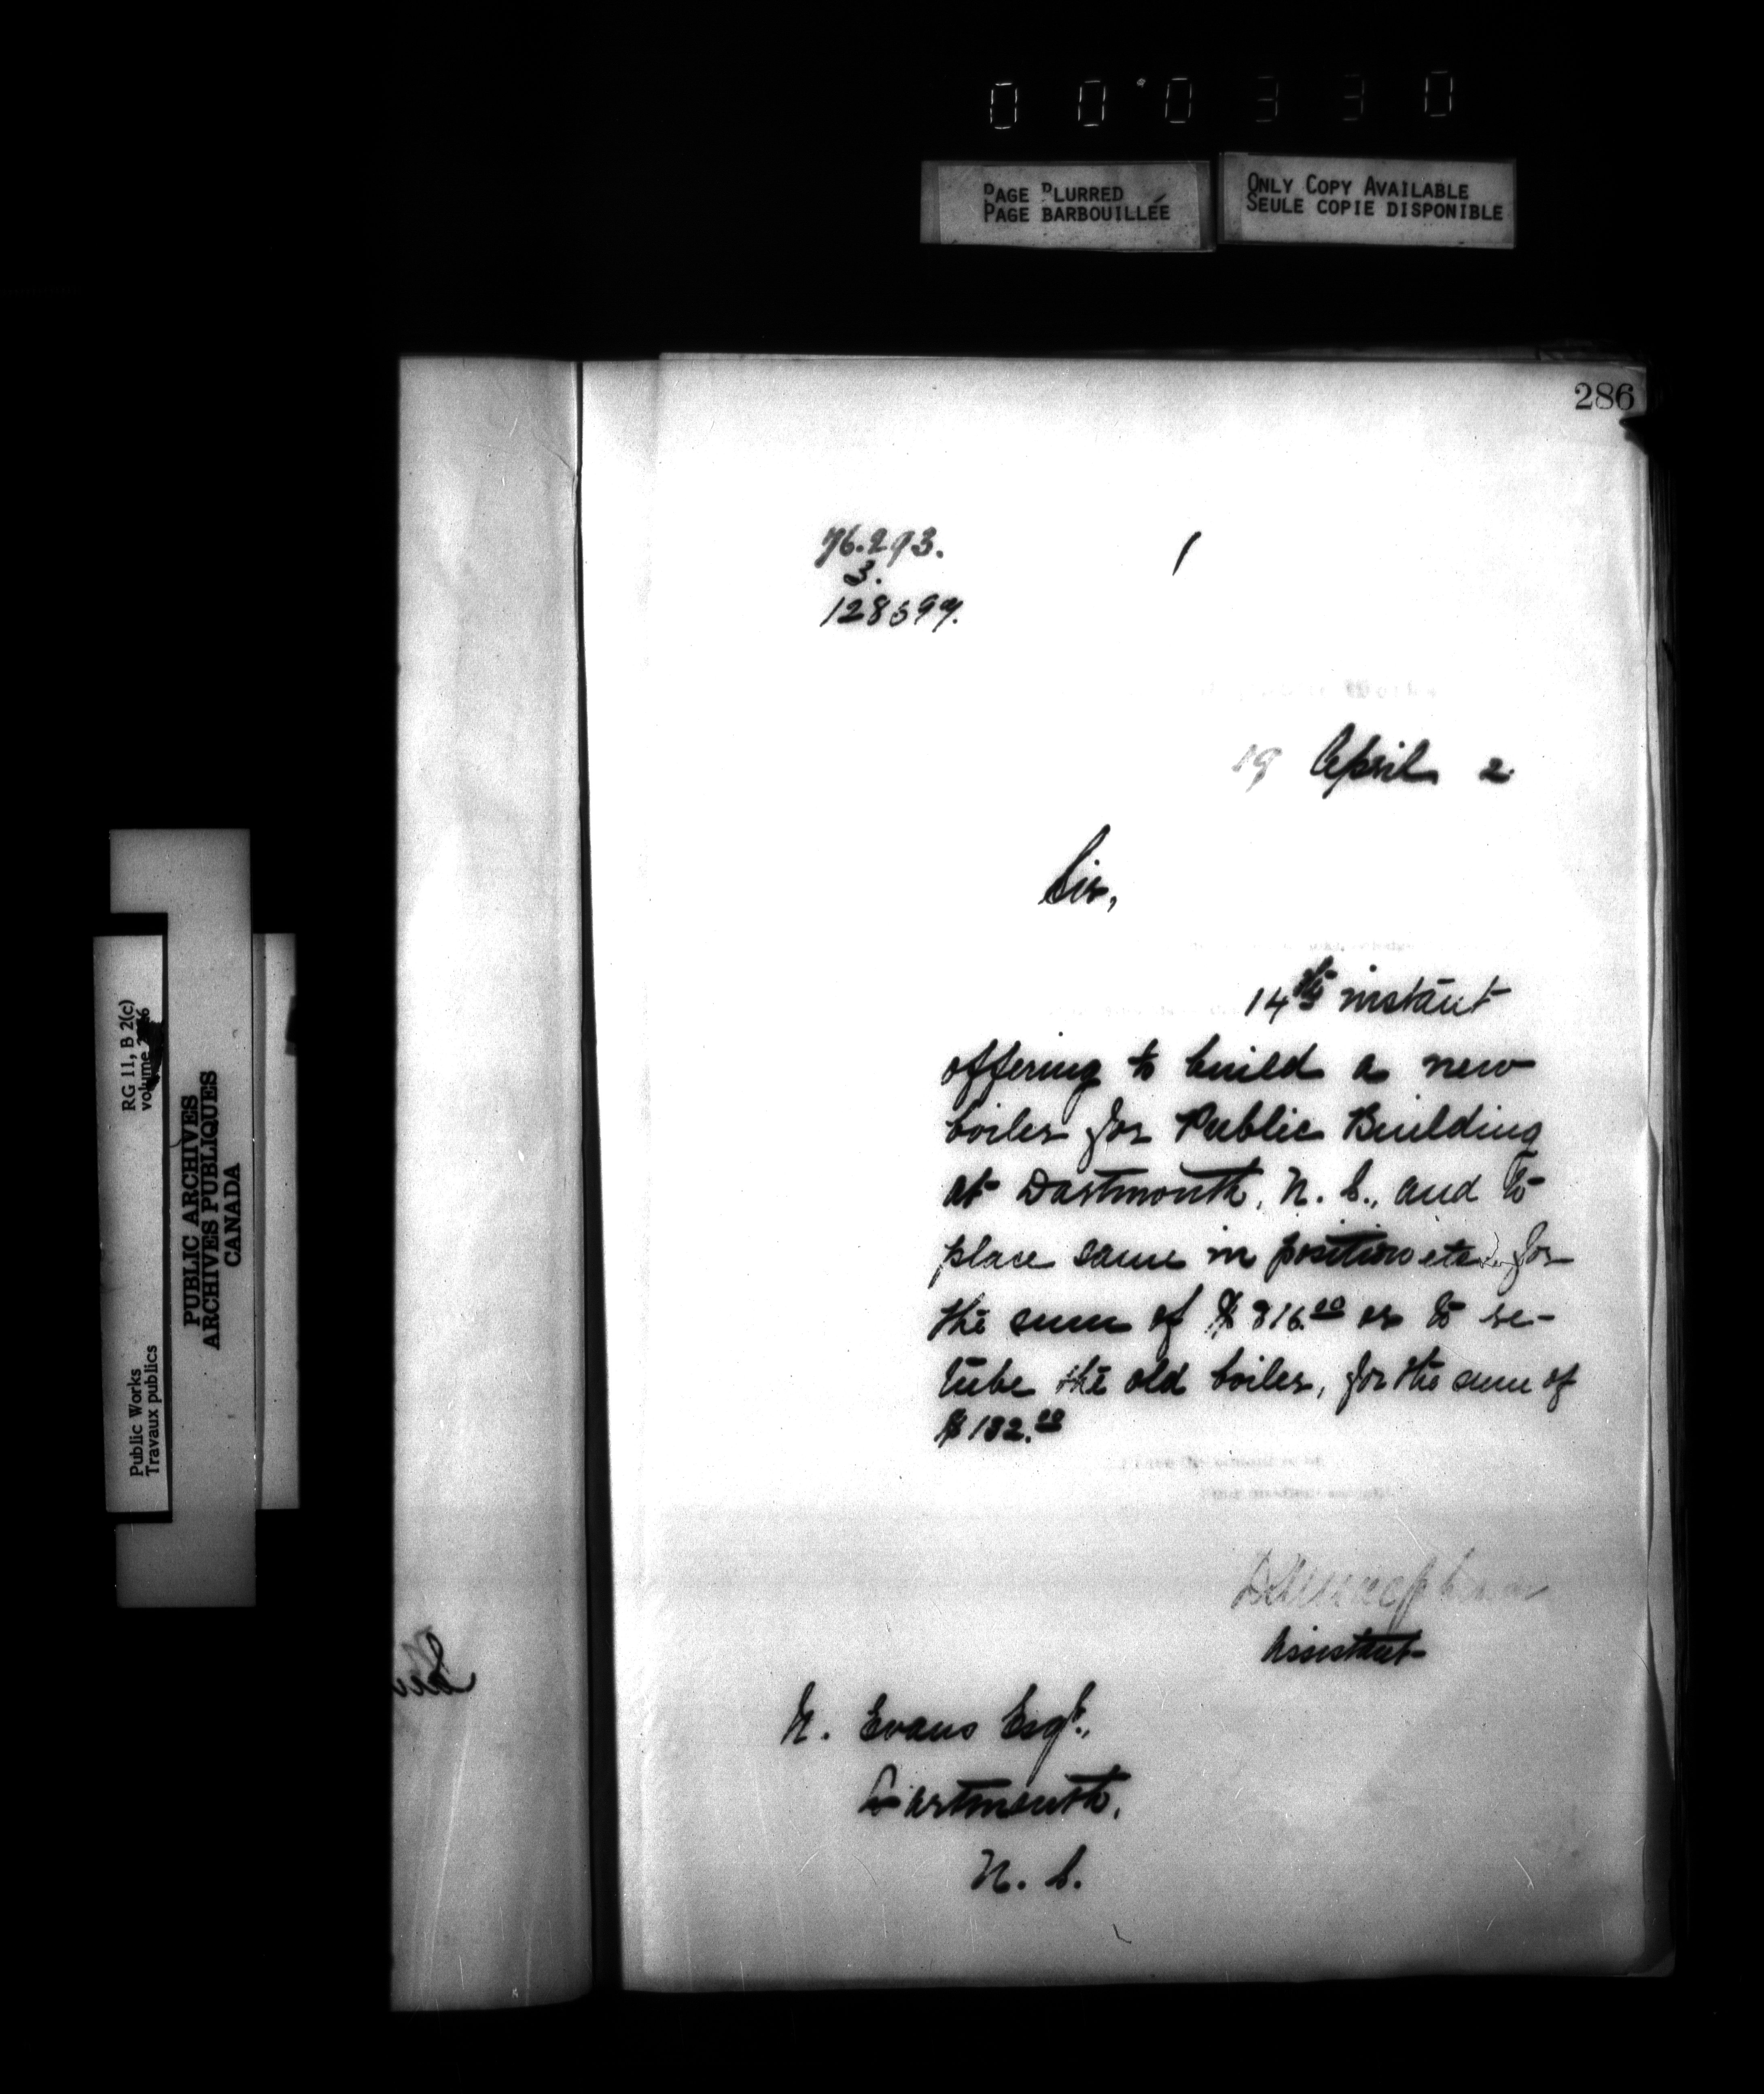 000330
PAGE BLURRED
PAGE BARBOUILLÉE
ONLY COPY AVAILABLE
SEULE COPIE DISPONIBLE
286
76.293.
3.
128597.
1
19 April 2
Sir,
14th instant
offering to build a new
boiler for Public Building
at Dartmouth, N. S., and to
place same in position etc. for
the sum of $ 316.00 or to re-
tube the old boiler, for the sum of
$ 132.00
Assistant
N. Evans Esqr.,
Dartmouth,
N. S.
RG 11, B 2(c)
volume
Public Works
Travaux publics
PUBLIC ARCHIVES
ARCHIVES PUBLIQUES
CANADA